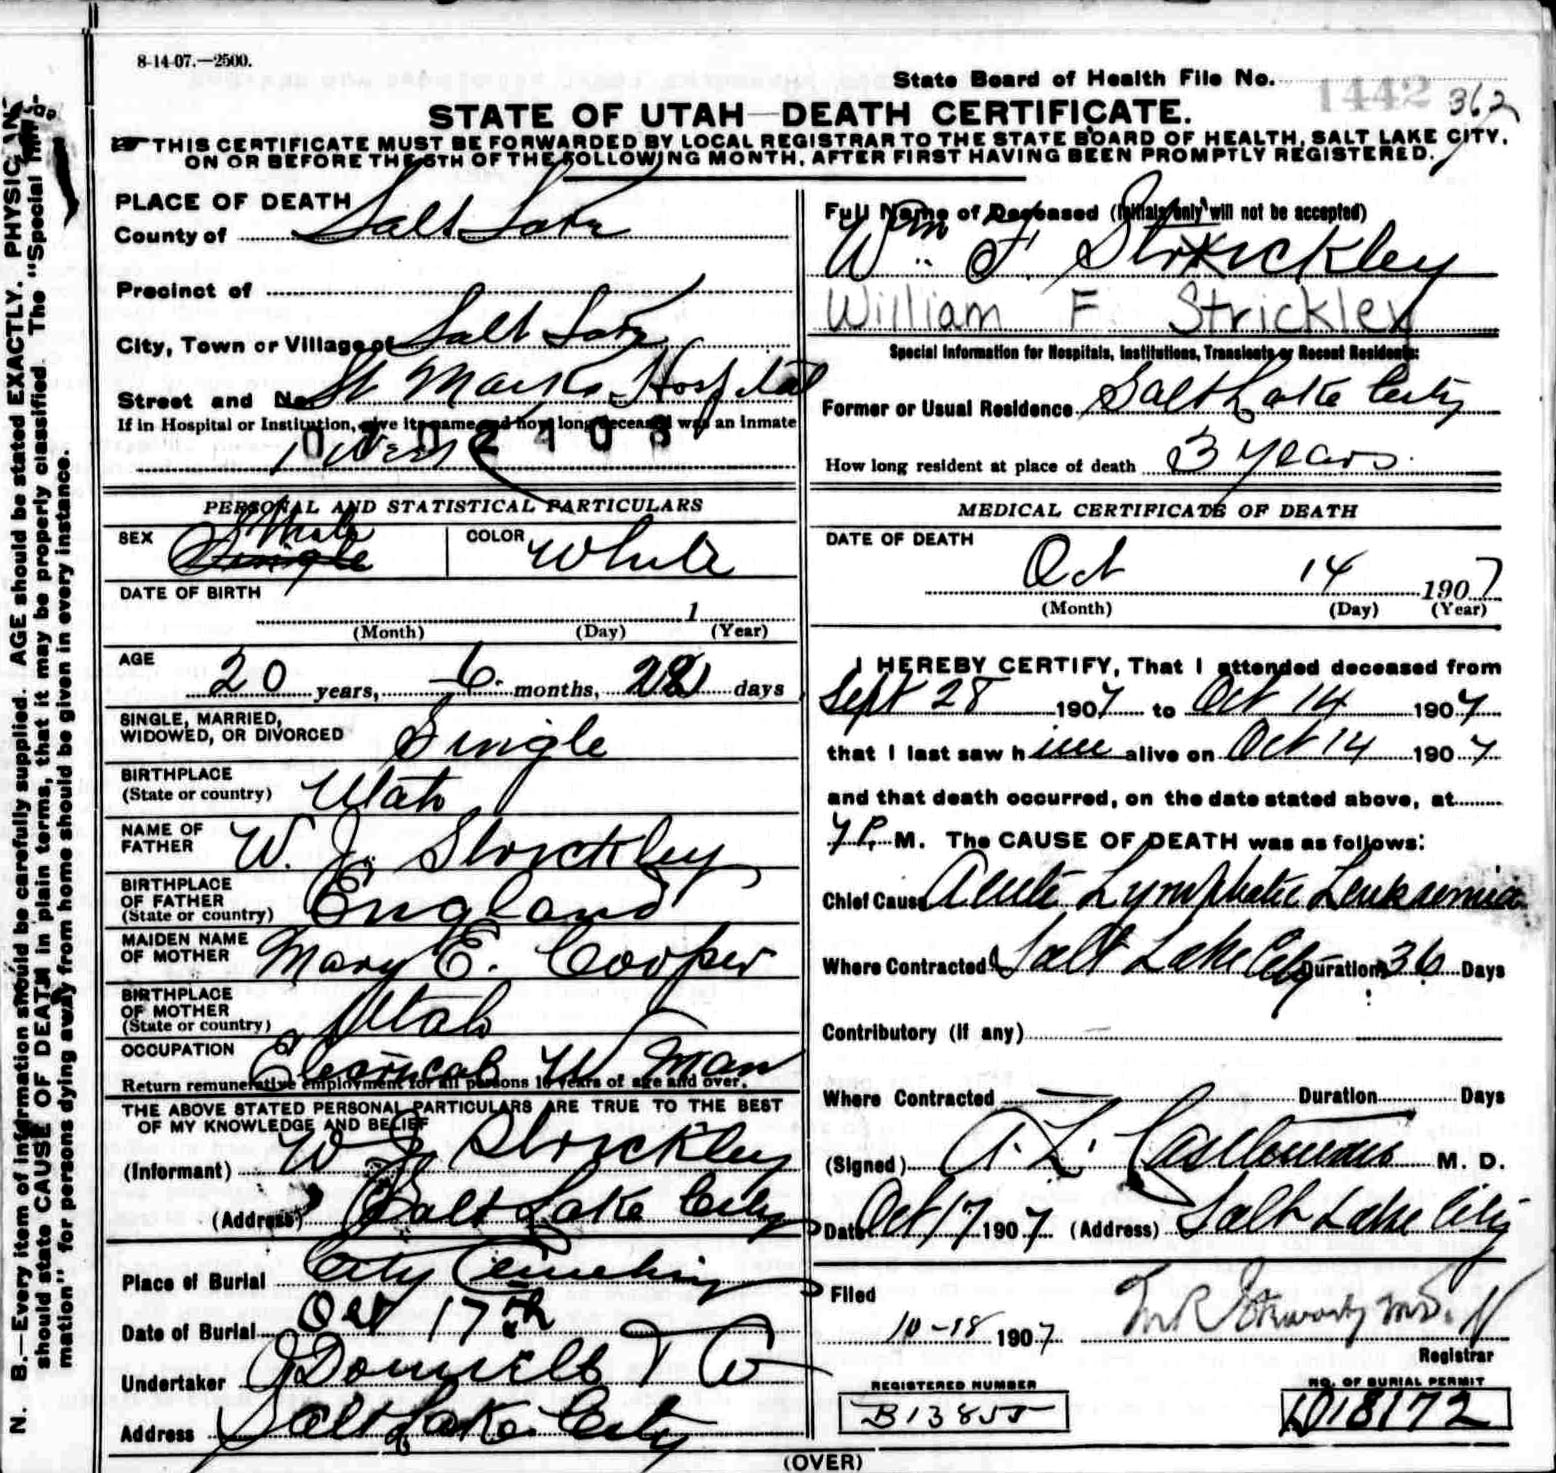 8-14-07.—2500.
State Board of Health File No. 1442 362
STATE OF UTAH—DEATH CERTIFICATE.
THIS CERTIFICATE MUST BE FORWARDED BY LOCAL REGISTRAR TO THE STATE BOARD OF HEALTH, SALT LAKE CITY,
ON OR BEFORE THE 5TH OF THE FOLLOWING MONTH, AFTER FIRST HAVING BEEN PROMPTLY REGISTERED.
N. B.—Every item of information should be carefully supplied. AGE should be stated EXACTLY. PHYSICIANS
should state CAUSE OF DEATH in plain terms, that it may be properly classified. The "Special Infor-
mation" for persons dying away from home should be given in every instance.
PLACE OF DEATH
County of Salt Lake
Precinct of
City, Town or Village of Salt Lake
Street and No. St Marks Hospital
If in Hospital or Institution, give its name and how long deceased was an inmate
0702408
1 Week
PERSONAL AND STATISTICAL PARTICULARS
SEX Male Single
COLOR White
DATE OF BIRTH
1
(Month) (Day) (Year)
AGE
20 years, 6 months, 28 days
SINGLE, MARRIED,
WIDOWED, OR DIVORCED Single
BIRTHPLACE
(State or country) Utah
NAME OF
FATHER W. J. Strickley
BIRTHPLACE
OF FATHER
(State or country) England
MAIDEN NAME
OF MOTHER Mary E. Cooper
BIRTHPLACE
OF MOTHER
(State or country) Utah
OCCUPATION Electrical W Man
Return remunerative employment for all persons 10 years of age and over.
THE ABOVE STATED PERSONAL PARTICULARS ARE TRUE TO THE BEST
OF MY KNOWLEDGE AND BELIEF
(Informant) W J Strickley
(Address) Salt Lake City
Place of Burial City Cemetery
Date of Burial Oct 17th
Undertaker O'Donnell & Co
Address Salt Lake City
Full Name of Deceased (Initials only will not be accepted)
Wm F. Strickley
William F. Strickley
Special Information for Hospitals, Institutions, Transients or Recent Residents:
Former or Usual Residence Salt Lake City
How long resident at place of death 3 years
MEDICAL CERTIFICATE OF DEATH
DATE OF DEATH
Oct 14 1907
(Month) (Day) (Year)
I HEREBY CERTIFY, That I attended deceased from
Sept 28 1907 to Oct 14 1907
that I last saw him alive on Oct 14 1907
and that death occurred, on the date stated above, at
7 P. M. The CAUSE OF DEATH was as follows:
Chief Cause Acute Lymphatic Leukaemia
Where Contracted Salt Lake City Duration 36 Days
Contributory (if any)
Where Contracted Duration Days
(Signed) A. L. M. D.
Date Oct 17 1907 (Address) Salt Lake City
Filed
10-18 1907 M.D.
Registrar
REGISTERED NUMBER
B13855
NO. OF BURIAL PERMIT
D18172
(OVER)